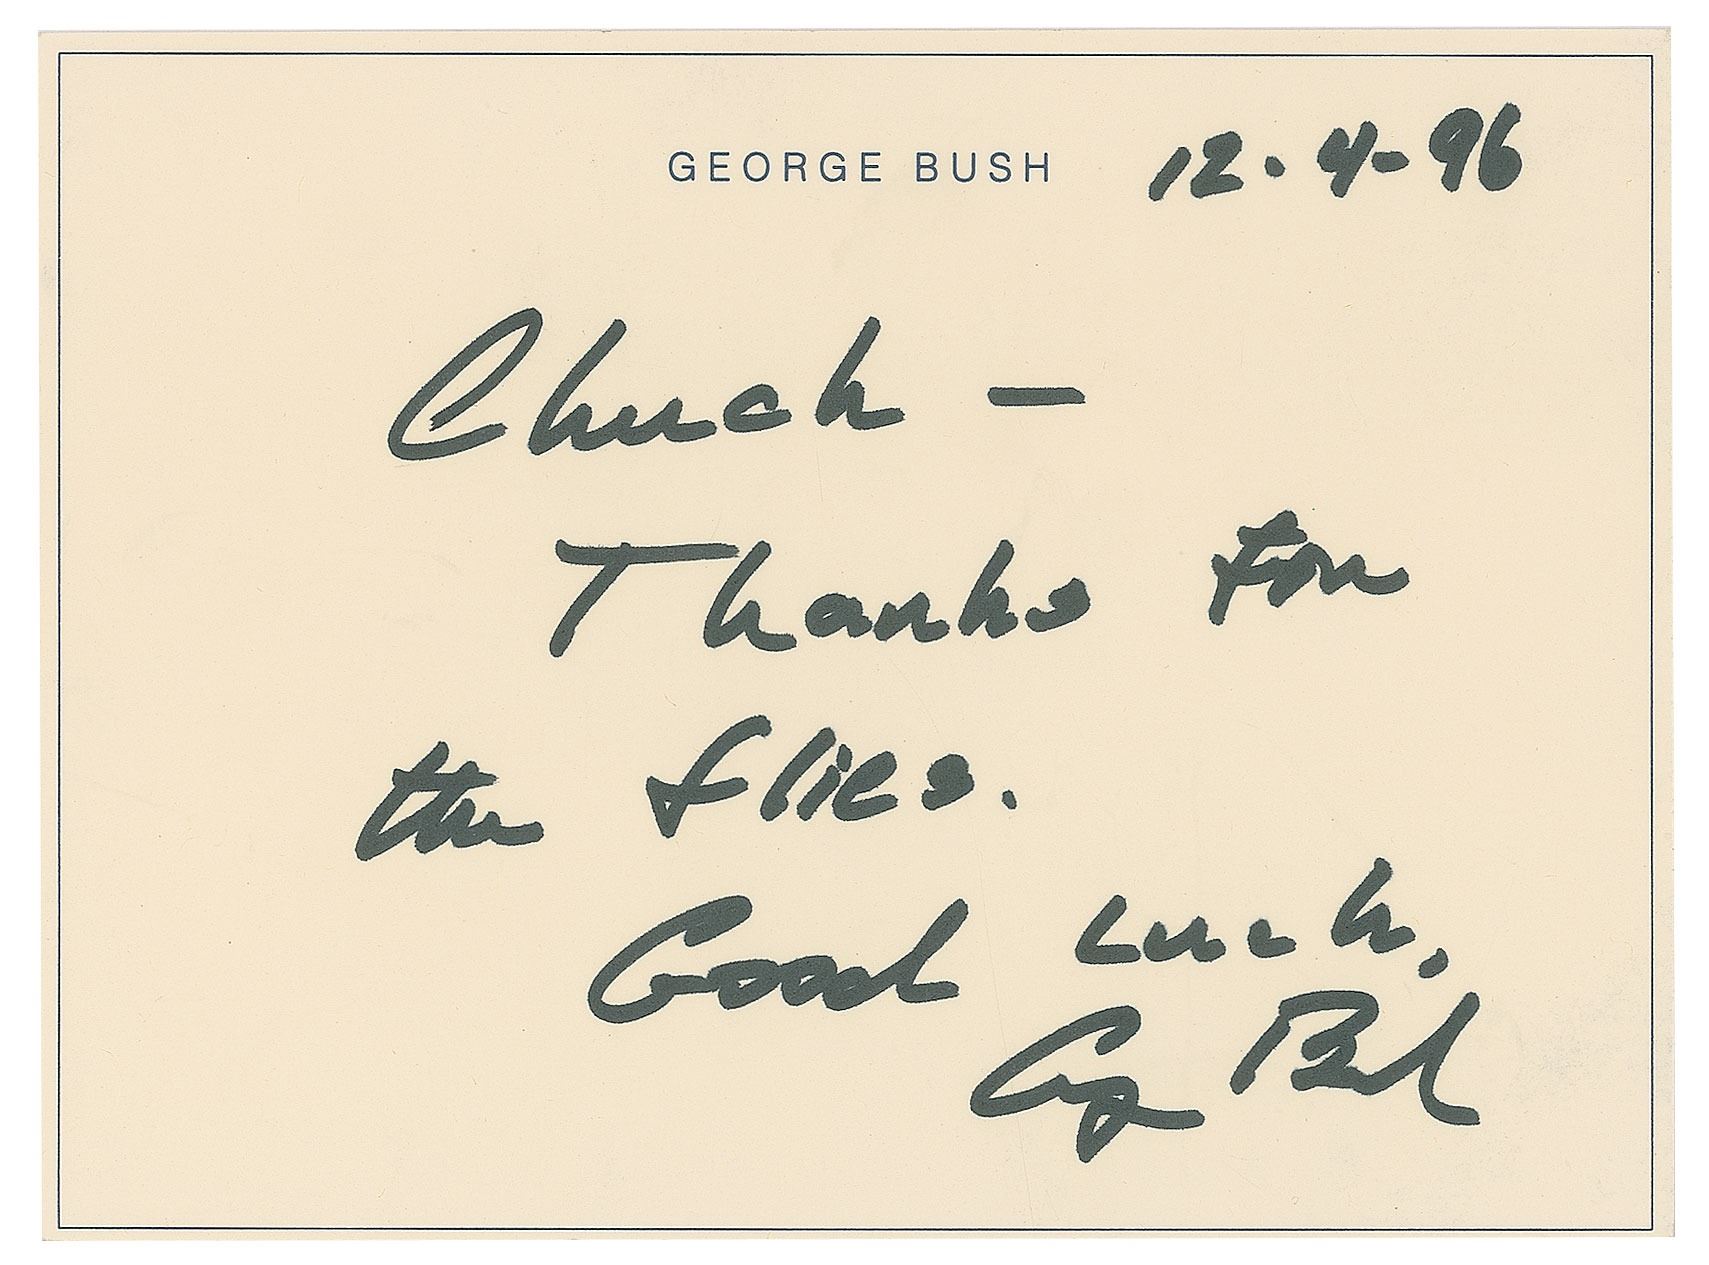 GEORGE BUSH 12.4-96
Chuck —
Thanks for
the flies.
Good Luck,
Gg Bush